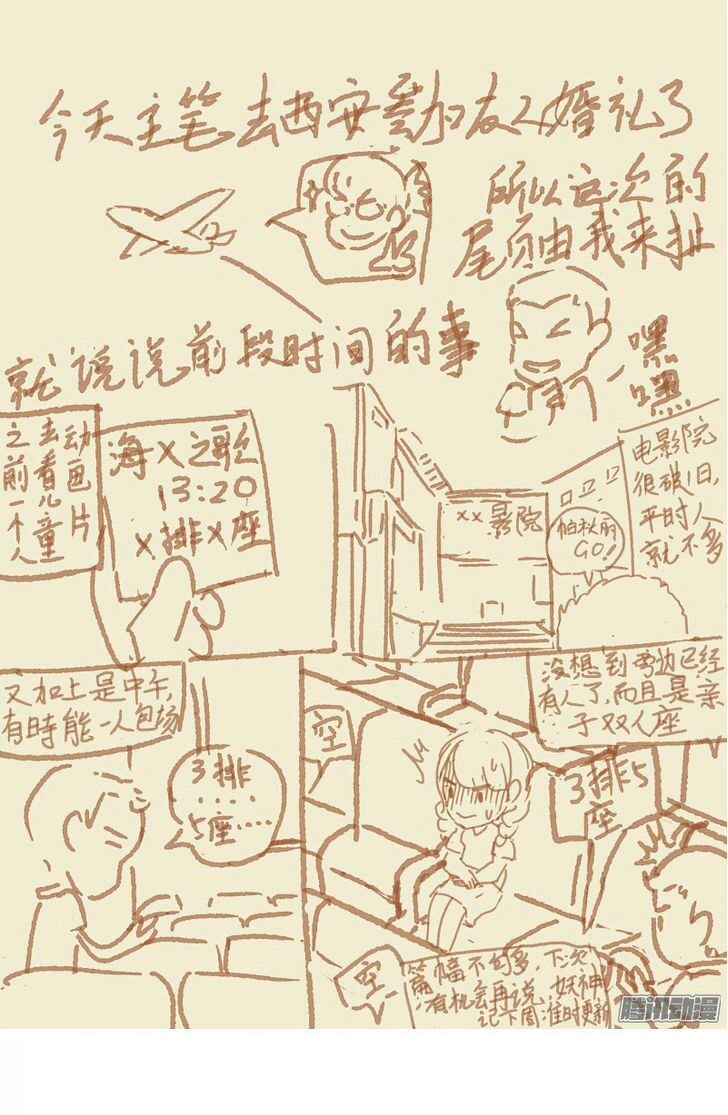 今天主笔去西安参加友人婚礼了
所以这次的
尾页由我来扯
就说说前段时间的事
嘿
嘿
之前一个人
去看儿童
动画片
海X之歌
13:20
X排X座
电影院
很破旧,
平时人
就不多
xx影院
帕秋丽
GO!
又加上是中午,
有時能一人包场
3排
....
5座....
没想到旁边已经
有人了,而且是亲
子双人座
空
3排5
座
空
篇幅不够多,下次
有机会再说,妖神
记下周准时更新
腾讯动漫